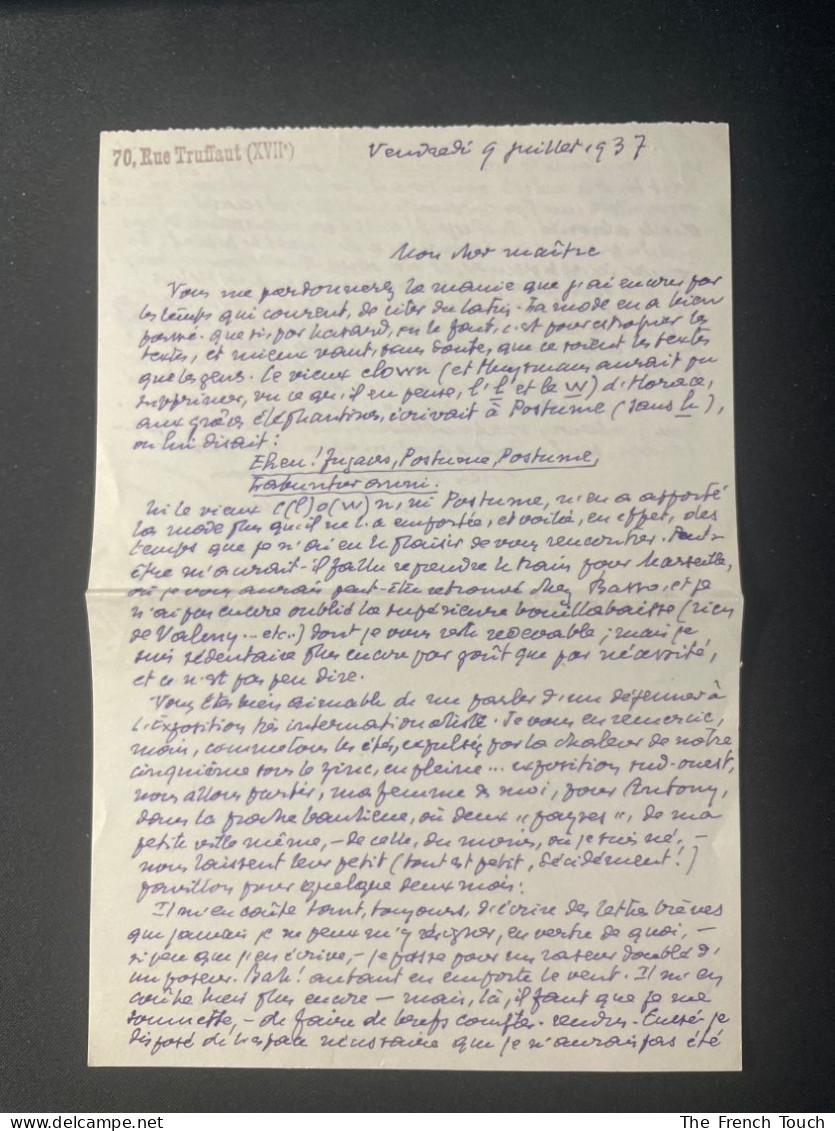 70, Rue Truffaut (XVIIe)
Vendredi 9 juillet 1937
Mon cher maître
Vous me pardonnerez la manie que j'ai encore par
les temps qui courent, de citer du latin. La mode en a bien
passé. Que si, par hasard, on le fait, c'est pour estropier les
textes, et mieux vaut, sans doute, que ce soient les textes
que les gens. Le vieux clown (et Huysmans aurait pu
supprimer, vu ce qu'il en pense, l'l et le w) d'Horace,
aux grâces éléphantines, écrivait à Postume (sans h),
ou lui disait :
Eheu ! fugaces, Postume, Postume,
Labuntur anni.
Ni le vieux c(l)o(w)n, ni Postume, n'en a apporté
la mode plus qu'il ne l'a emportée, et voilà, en effet, des
temps que je n'ai eu le plaisir de vous rencontrer. Peut-
être m'aurait-il fallu reprendre le train pour Marseille,
où je vous aurais peut-être retrouvé chez Basso, et je
n'ai pas encore oublié la supérieure bouillabaisse (rien
de Valmy... etc..) dont je vous reste redevable ; mais je
suis sédentaire plus encore par goût que par nécessité,
et ce n'est pas peu dire.
Vous êtes bien aimable de me parler d'un déjeuner à
l'Exposition très internationaliste. Je vous en remercie,
mais, comme tous les étés, expulsés par la chaleur de notre
cinquième sous le zinc, en pleine... exposition sud-ouest,
nous allons partir, ma femme & moi, pour Antony,
dans la proche banlieue, où deux « payses », de ma
petite ville même, – de celle, du moins, où je suis né, –
nous laissent leur petit (tout est petit, décidément !)
pavillon pour quelque deux mois.
Il m'en coûte tant, toujours, d'écrire des lettres brèves
que jamais je ne peux m'y résigner, en vertu de quoi, –
si peu que j'en écrive, – je passe pour un raseur doublé d'
un poseur. Bah ! autant en emporte le vent. Il m'en
coûte bien plus encore – mais, là, il faut que je me
soumette, – de faire de brefs comptes-rendus. Eussé-je
disposé de l'espace nécessaire que je n'aurais pas été
The French Touch